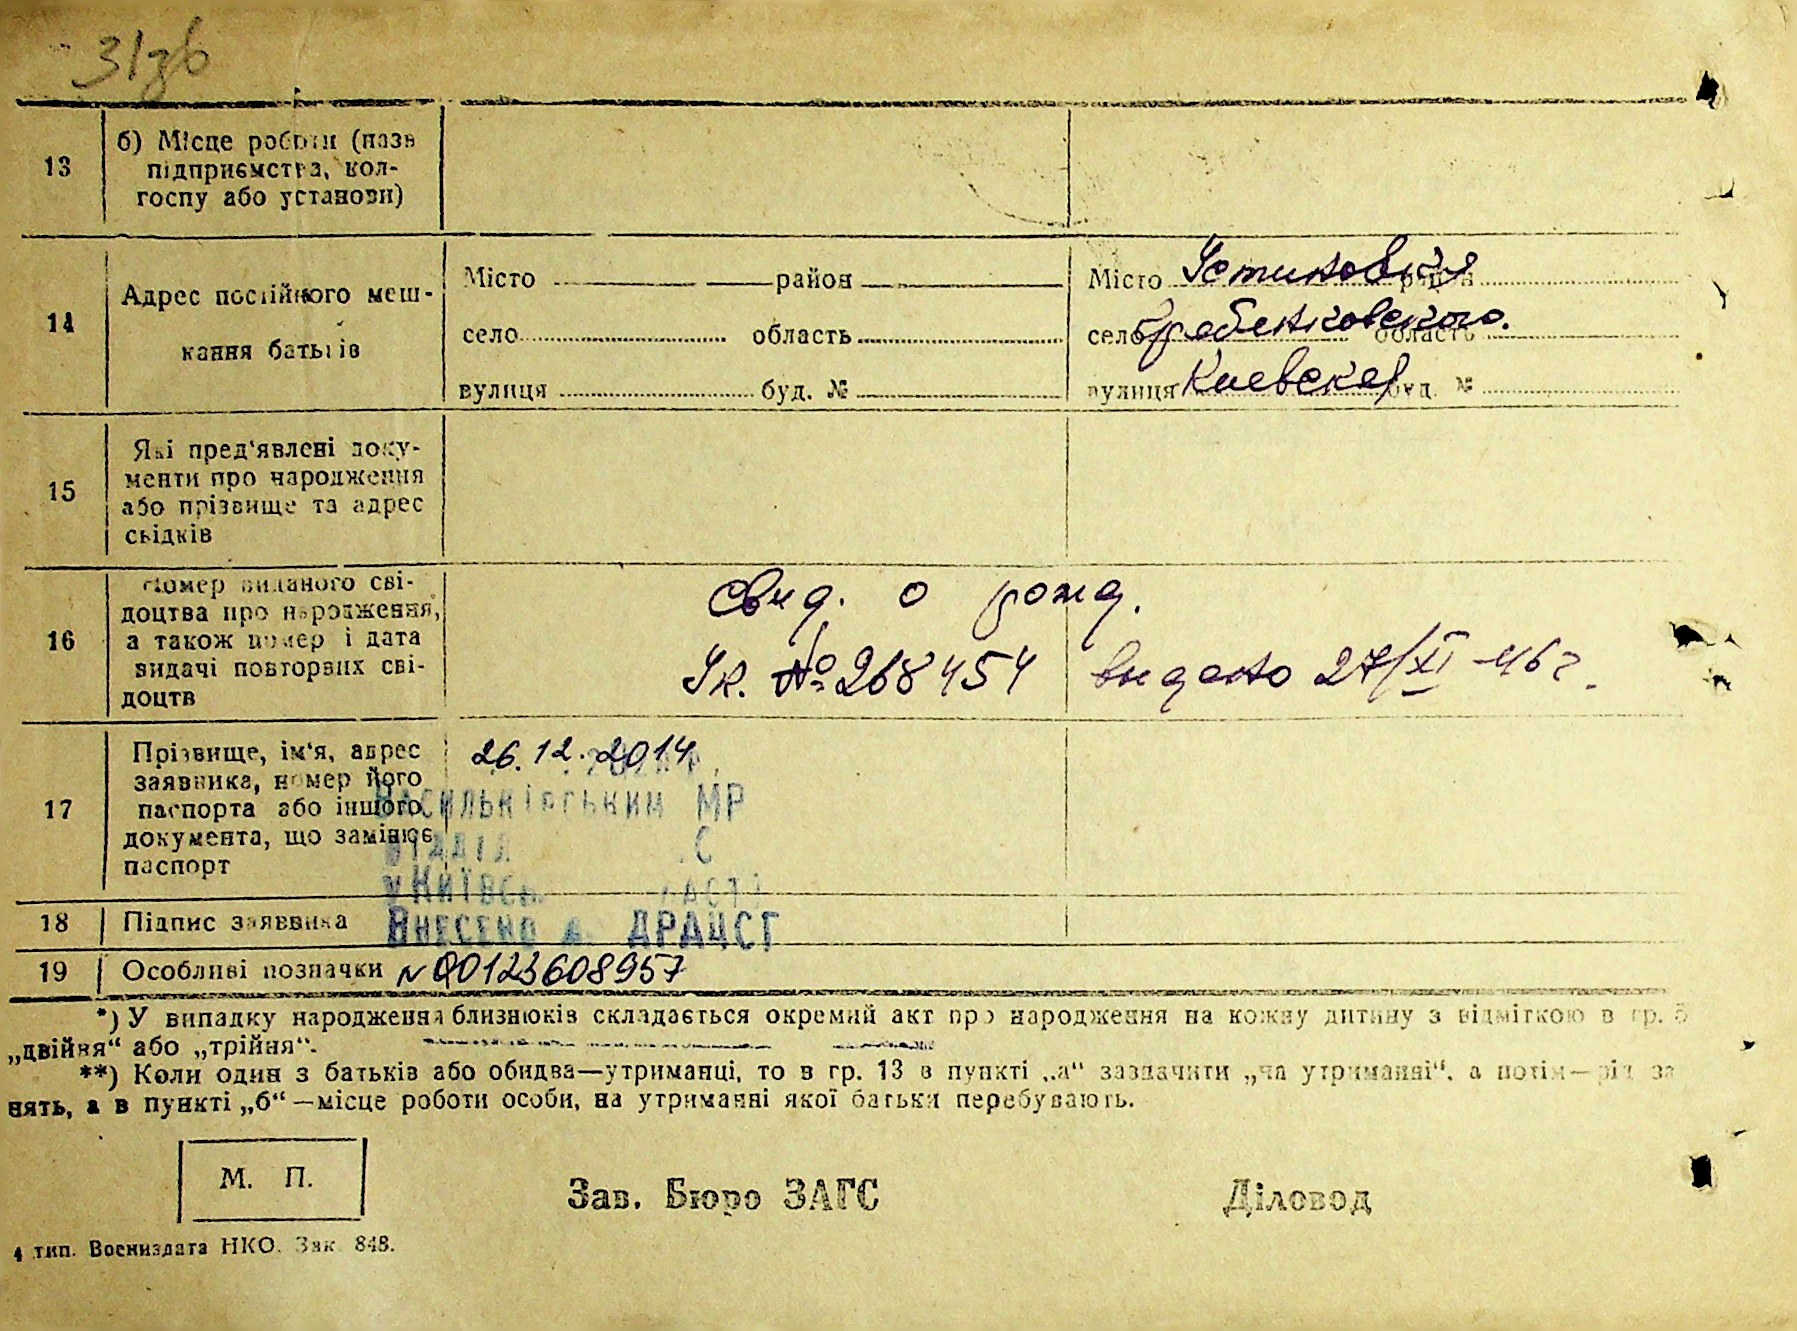 31зв
13
б) Місце роботи (назв
підприємства, кол-
госпу або установи)
14
Адрес постійного меш-
кання батьків
Місто район
село область
вулиця буд. №
Місто Устиновка район
село Гребенковского область
вулиця Киевская буд. №
15
Які пред'явлені доку-
менти про народження
або прізвище та адрес
свідків
16
Номер виданого сві-
доцтва про народження,
а також номер і дата
видачі повторних сві-
доцтв
Свид. о рожд.
Ук. № 268454 видано 27/XI-46 г.
17
Прізвище, ім'я, адрес
заявника, номер його
паспорта або іншого
документа, що замінює
паспорт
26.12.2014
Васильківським МР
Відділ С
у Київсь
Внесено ДРАЦСГ
18
Підпис заявника
19
Особливі позначки
N 00123608957
*) У випадку народження близнюків складається окремий акт про народження на кожну дитину з відміткою в гр. 5
„двійня“ або „трійня“.
**) Коли один з батьків або обидва—утриманці, то в гр. 13 в пункті „а“ зазначити „на утриманні“, а потім—рід за
нять, а в пункті „б“—місце роботи особи, на утриманні якої батьки перебувають.
М. П.
Зав. Бюро ЗАГС
Діловод
4 тип. Воениздата НКО. Зак. 848.